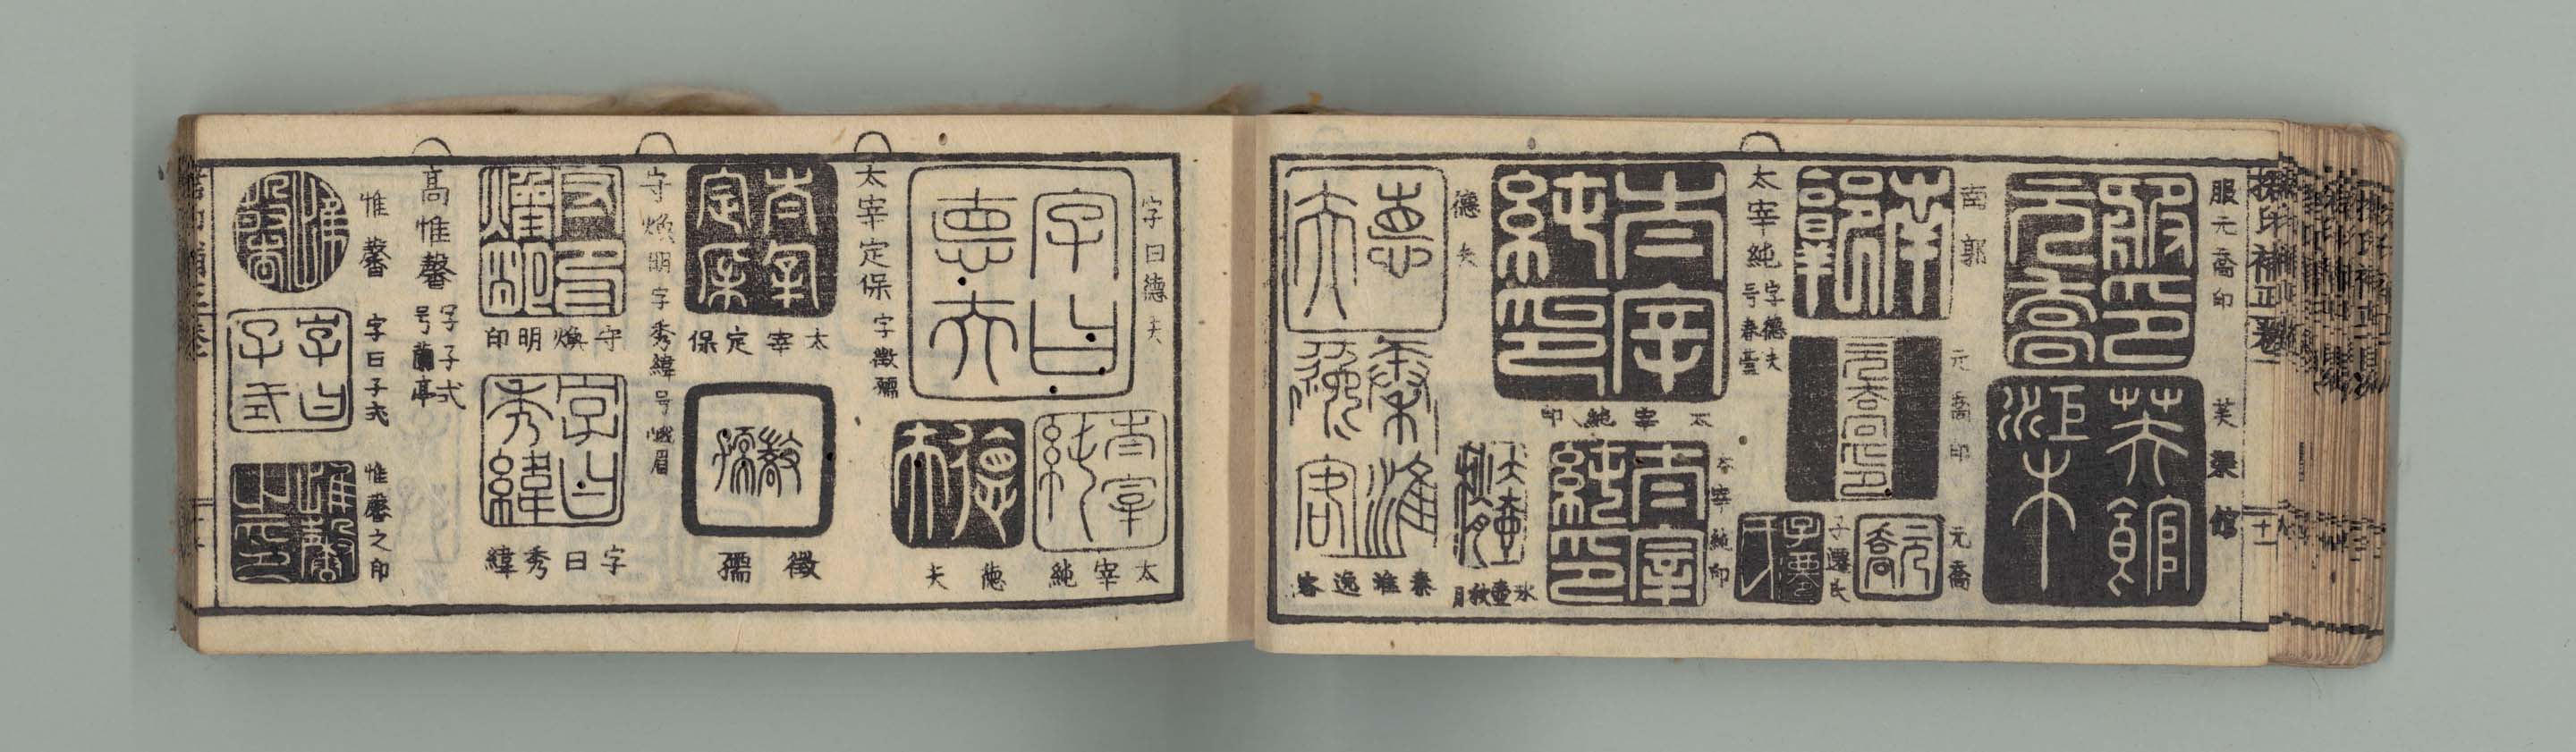 服元喬印
芙蕖館
南郭
元喬印
元喬
子遷氏
太宰純 字德夫 号春臺
太宰純印
太宰純印
德夫
氷壷秋月
秦淮逸客
字曰德夫
太宰純
德夫
太宰定保 字徵孺
太宰定保
徵孺
守煥明 字秀緯 号峨眉
守煥明印
字曰秀緯
高惟馨 字子式 号蘭亭
惟馨
字曰子式
惟馨之印